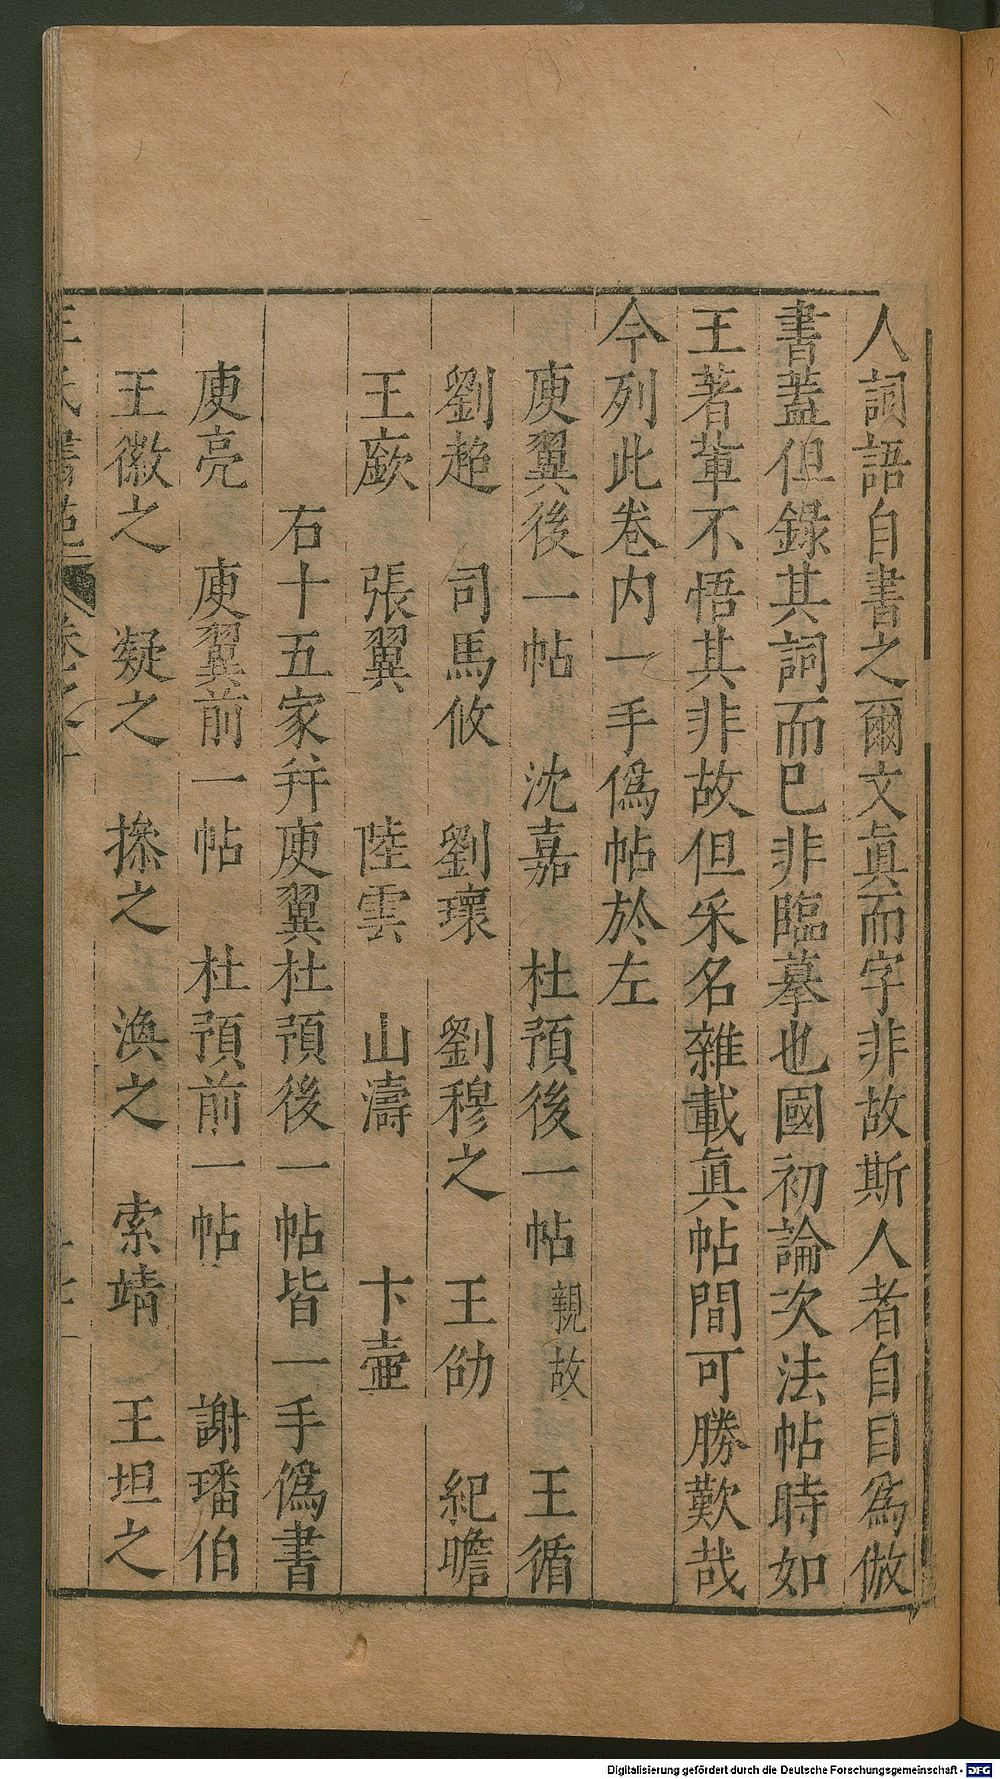 人詞語自書之爾文眞而字非故斯人者自目爲倣
書蓋但錄其詞而巳非臨摹也國初論次法帖時如
王著輩不悟其非故但采名雜載眞帖間可勝歎哉
今列此卷内一手僞帖於左
庾翼後一帖 沈嘉 杜預後一帖 親故 王循
劉超 司馬攸 劉瓌 劉穆之 王劭 紀瞻
王廞 張翼 陸雲 山濤 卞壷
右十五家幷庾翼杜預後一帖皆一手僞書
庾亮 庾翼前一帖 杜預前一帖 謝璠伯
王徽之 凝之 操之 渙之 索靖 王坦之
王氏書苑 卷之十
Digitalisierung gefördert durch die Deutsche Forschungsgemeinschaft - DFG